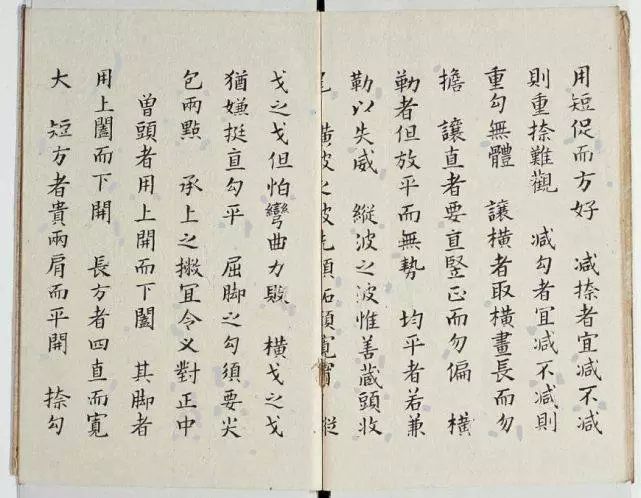 用短促而方好　减捺者冝减不减
則重捺難觀　减勾者冝减不减則
重勾無體　讓橫者取橫畫長而勿
擔　讓直者要直竪正而勿偏　橫
勒者但放平而無勢　均平者若兼
勒以失威　縱波之波惟善藏頭收
尾　橫波之波先須　寬　縱
戈之戈但怕彎曲力敗　橫戈之戈
猶嫌挺直勾平　屈脚之勾須要尖
包兩點　承上之撇冝令义對正中
曽頭者用上開而下闔　其脚者
用上闔而下開　長方者四直而寬
大　短方者貴兩肩而平開　捺勾